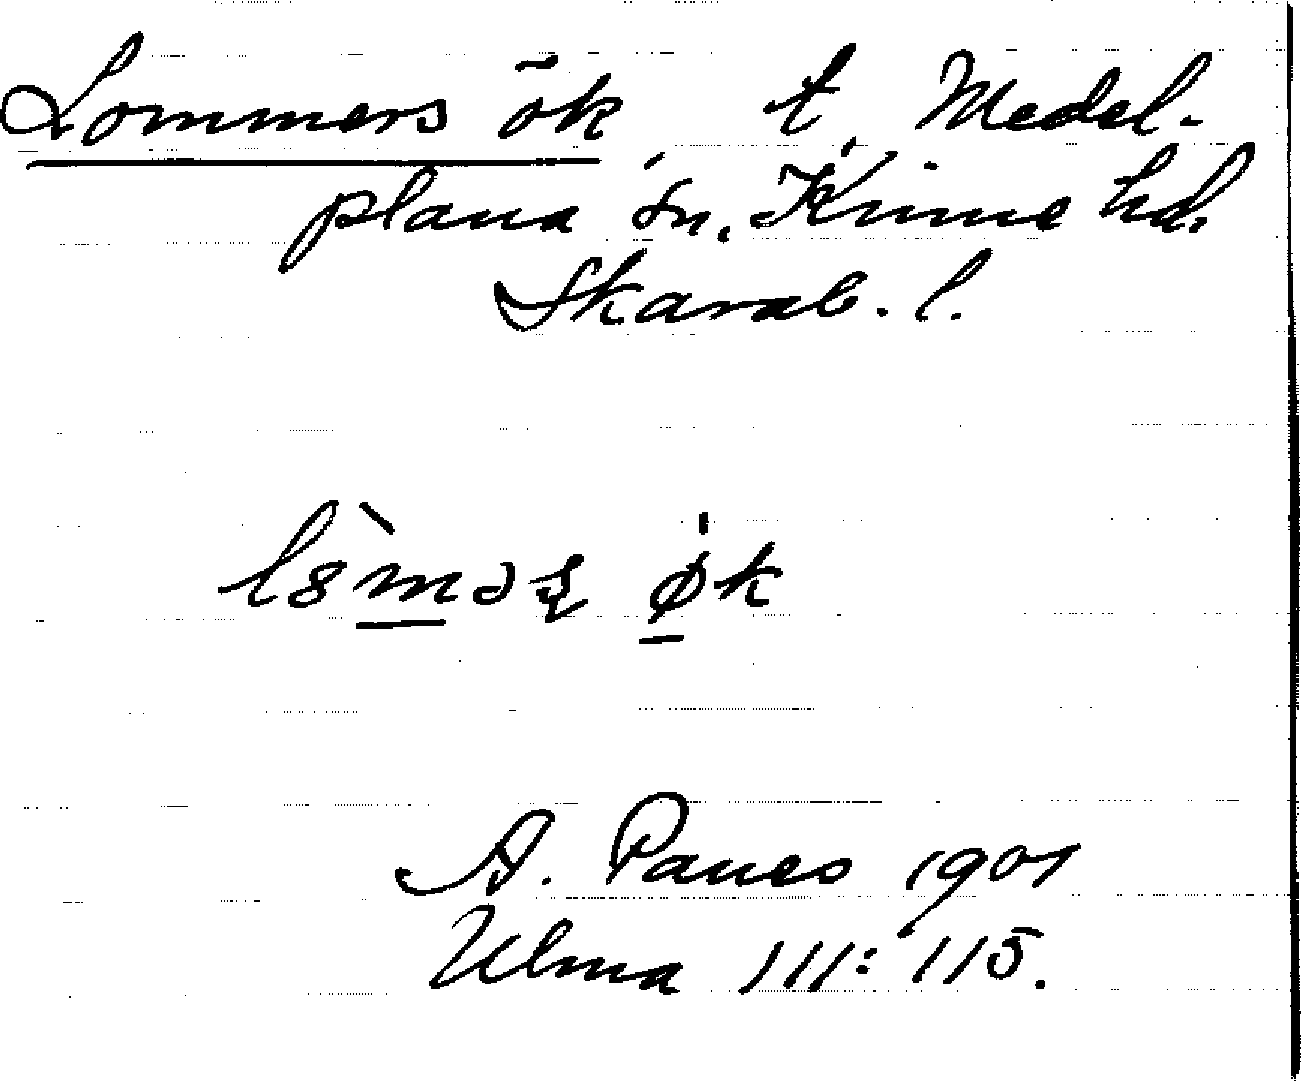 Lommers ök t. Medel-
plana sn. Kinne hd.
Skarab. l.
l8̀məʂ ø̍k
A. Paues 1901
Ulma 111: 115.